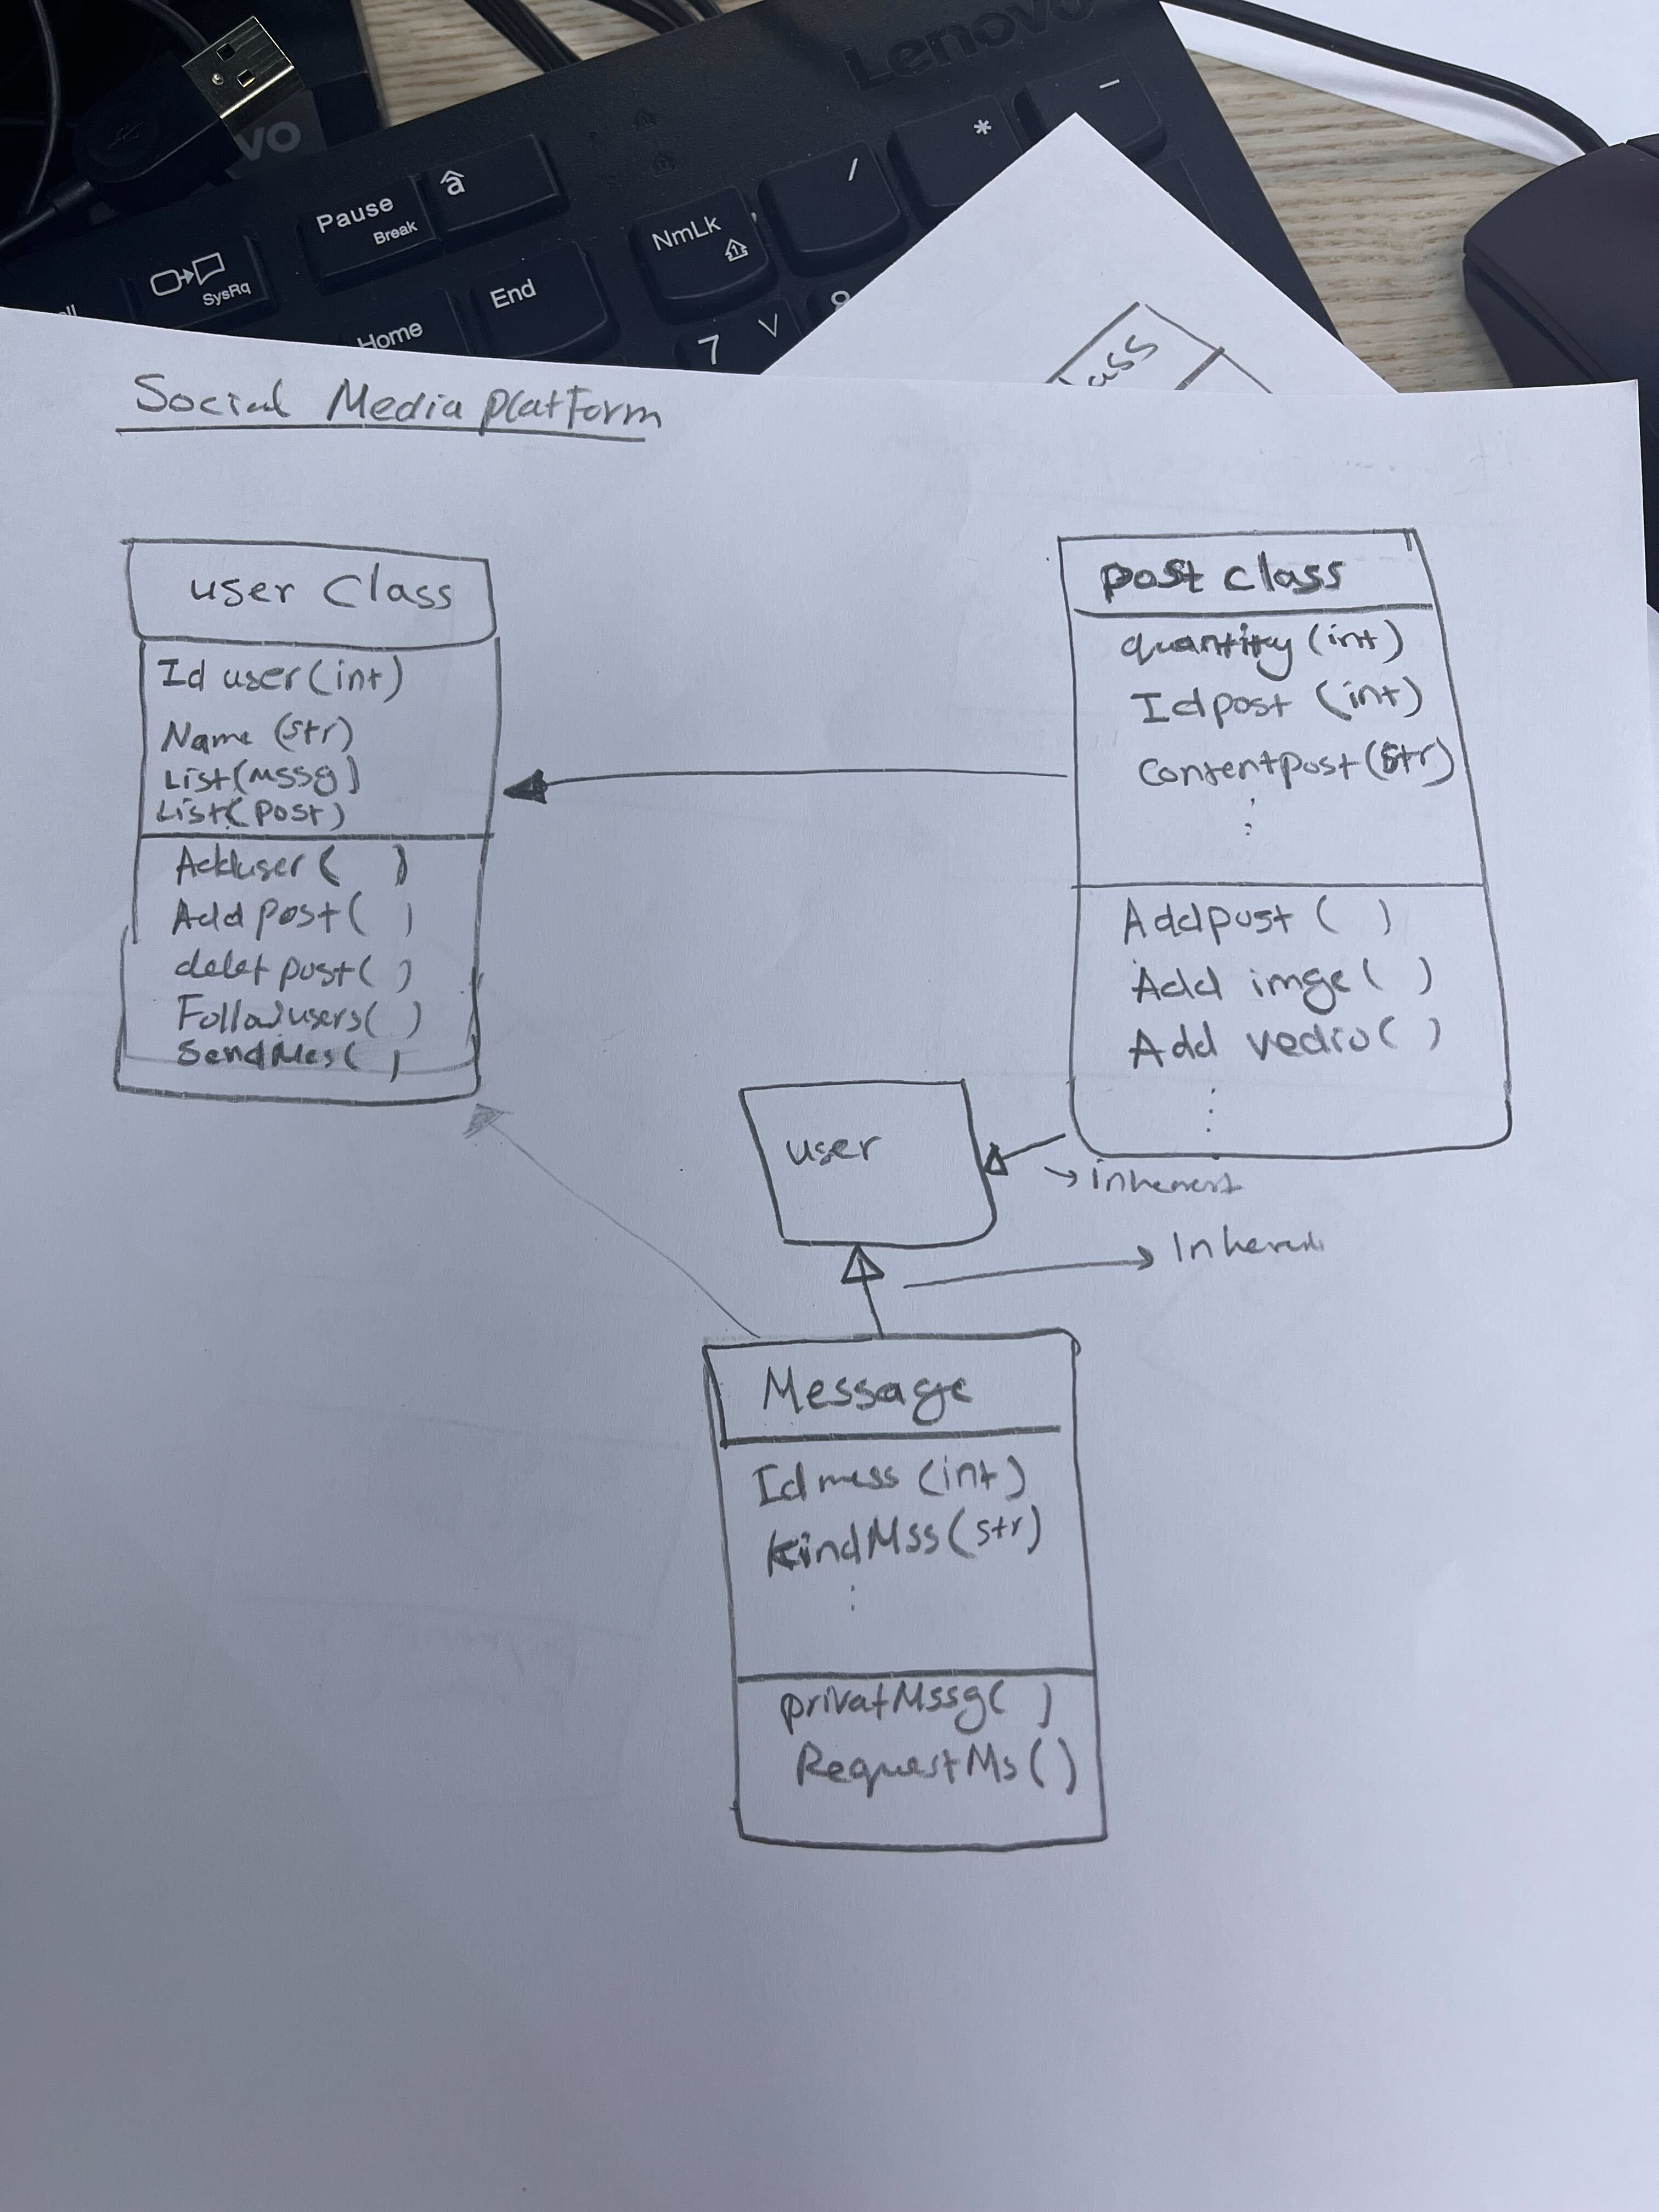 Lenovo
VO
Pause
Break
â
*
-
/
NmLk
SysRq
End
Home
7
8
ass
Social Media platform
user Class
Id user (int)
Name (str)
List(Mssg]
List(post)
Adduser ( )
Add post ( )
delet post ( )
Follow users( )
SendMes( )
post class
quantity (int)
Id post (int)
Content post (str)
:
Addpost ( )
Add imge ( )
Add vedio ( )
:
user
Message
Id mess (int)
KindMss (str)
:
privatMssg( )
RequestMs ( )